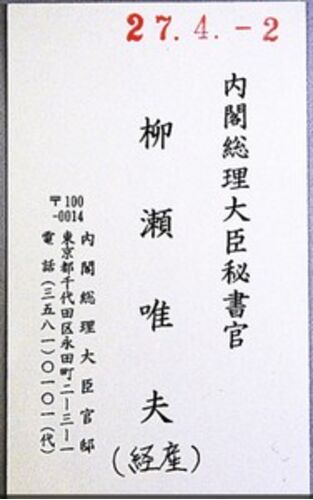 27.4.-2
内閣総理大臣秘書官
柳瀬唯夫
(経産)
〒100
-0014
内閣総理大臣官邸
東京都千代田区永田町二ー三ー一
電話(三五八一)〇一〇一(代)